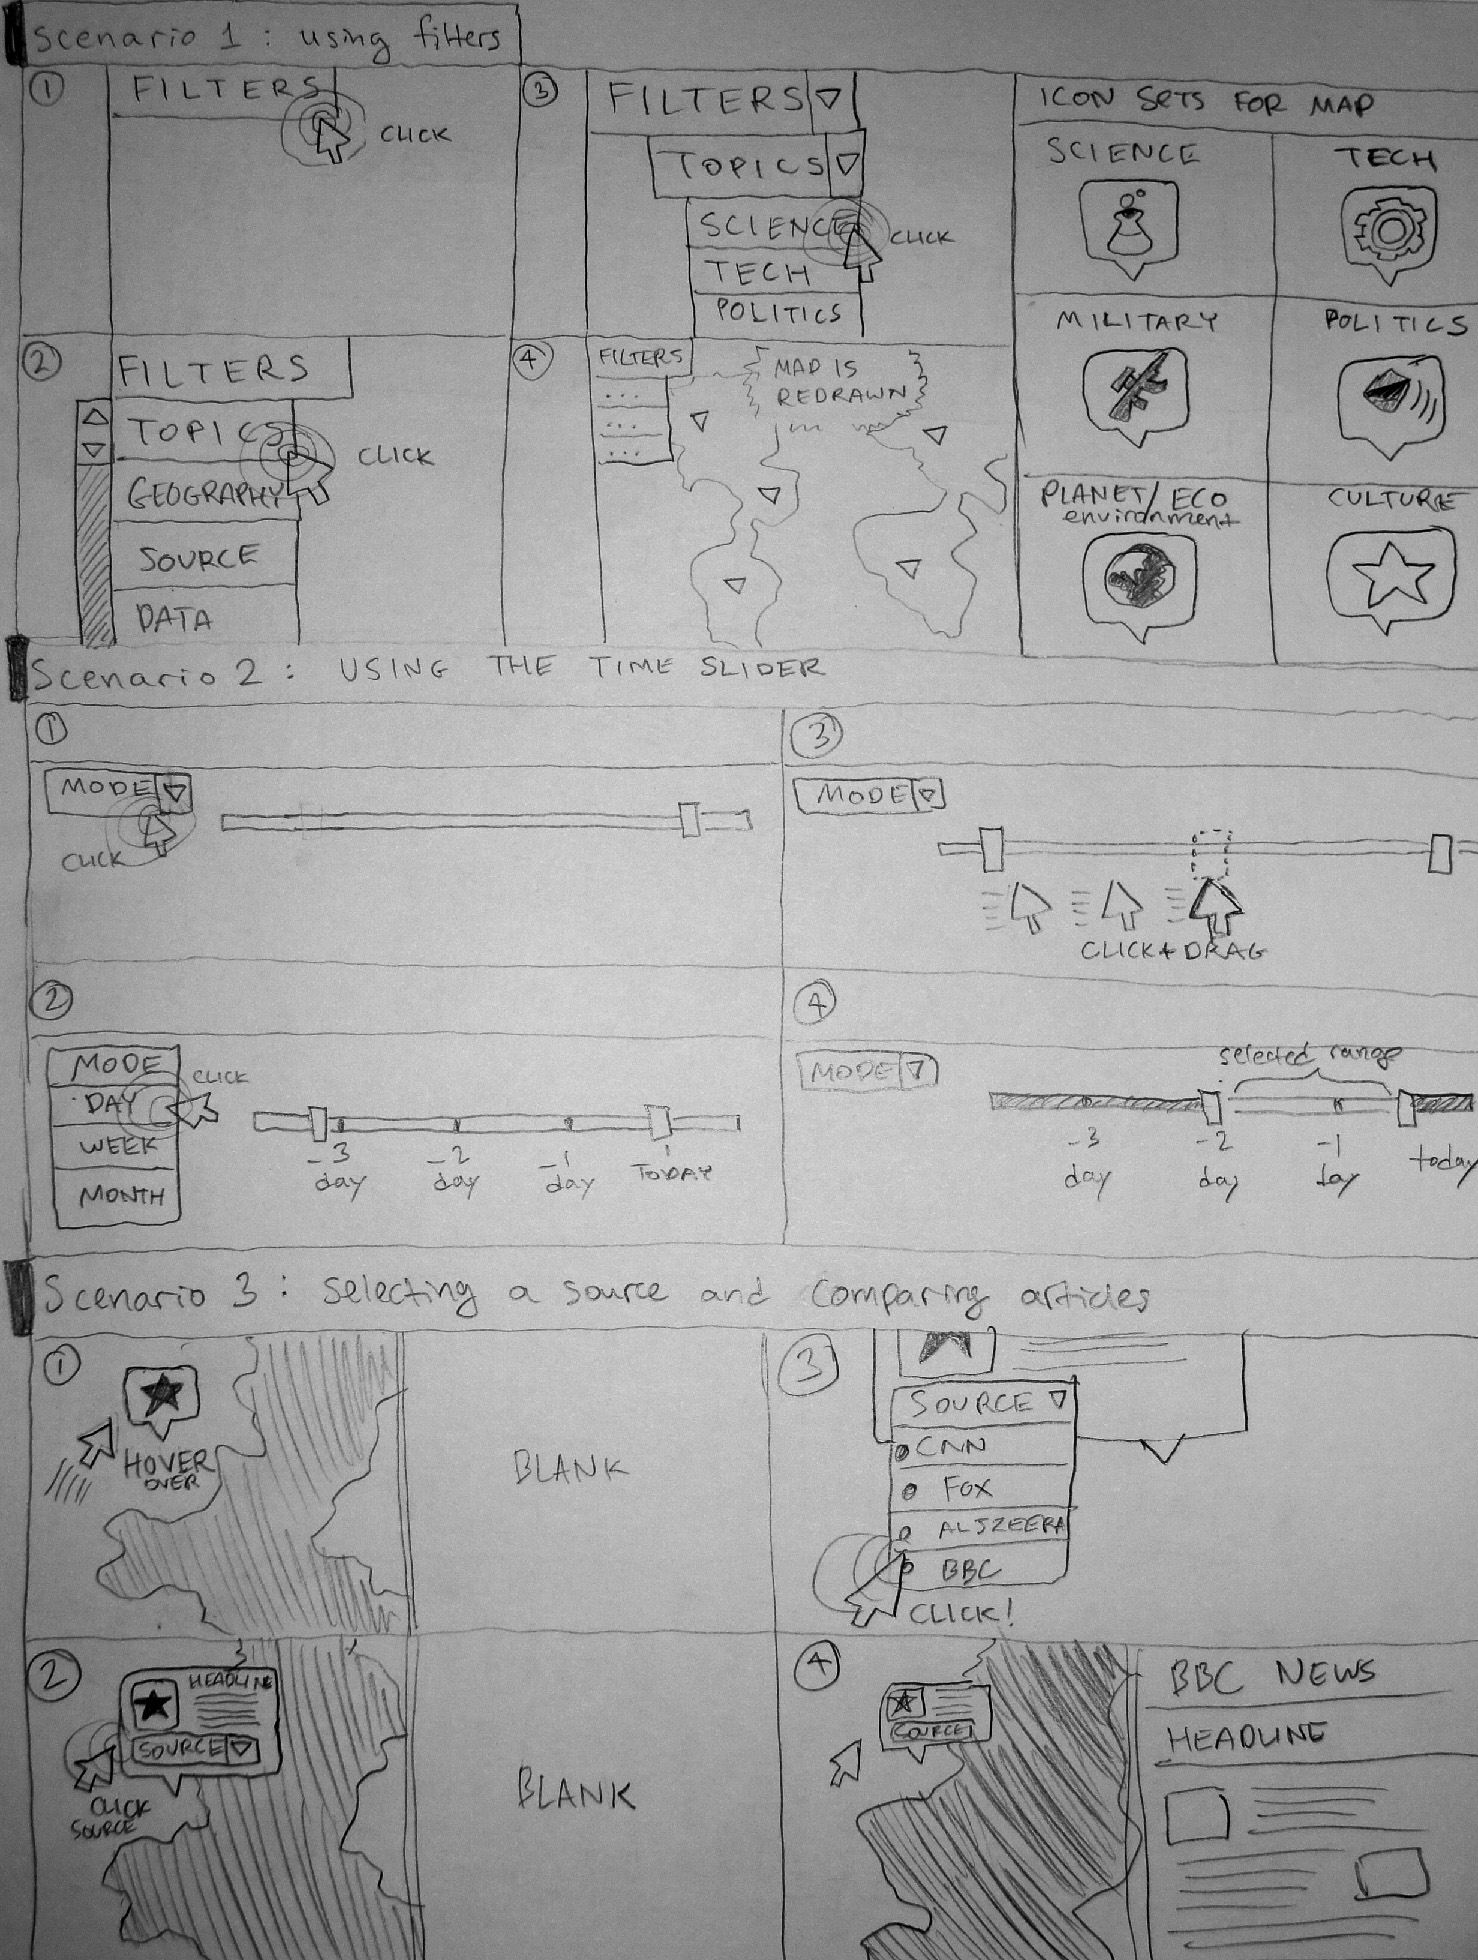 Scenario 1 : using filters
1
FILTERS
CLICK
2
FILTERS
TOPICS
CLICK
GEOGRAPHY
SOURCE
DATA
3
FILTERS
TOPICS
SCIENCE
CLICK
TECH
POLITICS
4
FILTERS
...
...
...
MAP IS
REDRAWN
ICON SETS FOR MAP
SCIENCE
TECH
MILITARY
POLITICS
PLANET/ECO
environment
CULTURE
Scenario 2 : USING THE TIME SLIDER
1
MODE
CLICK
2
MODE
CLICK
DAY
WEEK
MONTH
-3
day
-2
day
-1
day
TODAY
3
MODE
CLICK+DRAG
4
MODE
selected range
-3
day
-2
day
-1
day
today
Scenario 3 : Selecting a source and comparing articles
1
HOVER
OVER
BLANK
2
HEADLINE
SOURCE
CLICK
SOURCE
BLANK
3
SOURCE
CNN
FOX
ALJZEERA
BBC
CLICK!
4
SOURCE
BBC NEWS
HEADLINE